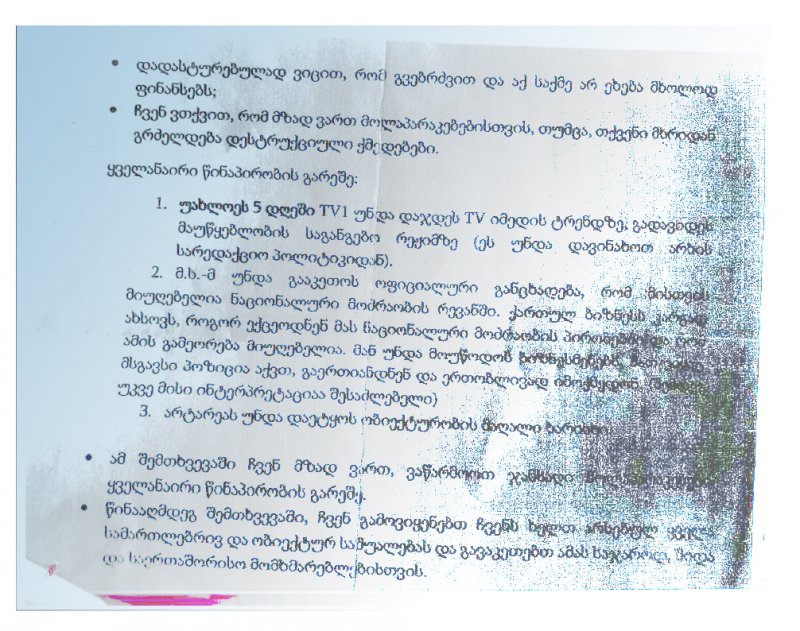 • დადასტურებულად ვიცით, რომ გვებრძვით და აქ საქმე არ ეხება მხოლოდ
ფინანსებს;
• ჩვენ ვთქვით, რომ მზად ვართ მოლაპარაკებებისთვის, თუმცა, თქვენი მხრიდან
გრძელდება დესტრუქციული ქმედებები.
ყველანაირი წინაპირობის გარეშე:
1. უახლოეს 5 დღეში TV1 უნდა დაჯდეს TV იმედის ტრენდზე, გადავიდეს
მაუწყებლობის საგანგებო რეჟიმზე (ეს უნდა დავინახოთ არხის
სარედაქციო პოლიტიკიდან).
2. მ.ხ.-მ უნდა გააკეთოს ოფიციალური განცხადება, რომ მისთვის
მიუღებელია ნაციონალური მოძრაობის რევანში. ქართულ ბიზნესს კარგად
ახსოვს, როგორ ექცეოდნენ მას ნაციონალური მოძრაობის პირობებში და რომ
ამის გამეორება მიუღებელია. მან უნდა მოუწოდოს ბიზნესმენებს,
მსგავსი პოზიცია აქვთ, გაერთიანდნენ და ერთობლივად იმოქმედონ.
უკვე მისი ინტერპრეტაციაა შესაძლებელი)
3. არტარეას უნდა დაეტყოს ობიექტურობის მაღალი ხარისხი.
• ამ შემთხვევაში ჩვენ მზად ვართ, ვაწარმოოთ ჯანსაღი
ყველანაირი წინაპირობის გარეშე.
• წინააღმდეგ შემთხვევაში, ჩვენ გამოვიყენებთ ჩვენს ხელთ არსებულ ყველა
სამართლებრივ და ობიექტურ საშუალებას და გავაკეთებთ ამას საჯაროდ, შიდა
და საერთაშორისო მომხმარებლებისთვის.